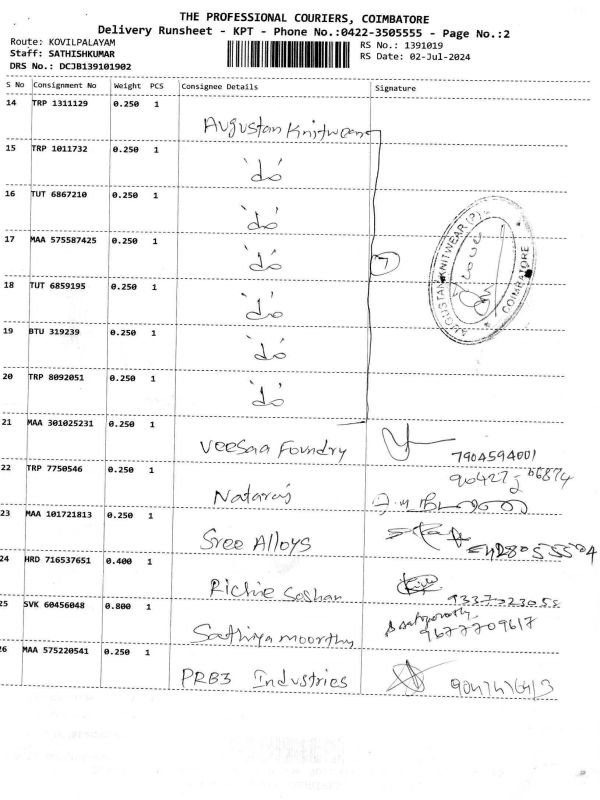 THE PROFESSIONAL COURIERS, COIMBATORE
Delivery Runsheet - KPT - Phone No.:0422-3505555 - Page No.:2
Route: KOVILPALAYAM RS No.: 1391019
Staff: SATHISHKUMAR RS Date: 02-Jul-2024
DRS No.: DCJB139101902
S No Consignment No Weight PCS Consignee Details Signature
14 TRP 1311129 0.250 1 Augustan Knitwear
15 TRP 1011732 0.250 1 'do'
16 TUT 6867210 0.250 1 'do'
17 MAA 575587425 0.250 1 'do' 7
18 TUT 6859195 0.250 1 'do'
19 BTU 319239 0.250 1 'do'
20 TRP 8092051 0.250 1 'do'
AUGUSTAN KNITWEAR (P)
COIMBATORE
21 MAA 301025231 0.250 1 Veesaa Foundry 7904594001
22 TRP 7750546 0.250 1 Nataraj
23 MAA 101721813 0.250 1 Sree Alloys
24 HRD 716537651 0.400 1 Richie
25 SVK 60456048 0.800 1 Sathiya moorthy 9677709617
26 MAA 575220541 0.250 1 PRB3 Industries